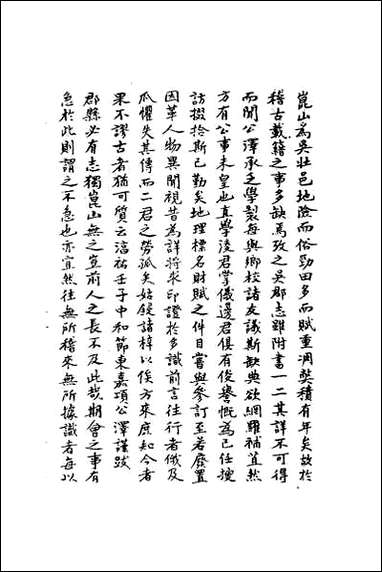 崑山為吳壯邑地險而俗勁田多而賦重凋獘積有年矣故於
稽古載籍之事多缺焉攷之吳郡志雖附書一二其詳不可得
而聞公澤承乏學製每與鄉校諸友議斯缺典欲網羅補苴然
方有公事未皇也直學淩君掌儀邊君俱有俊譽慨為己任搜
訪掇拾斯已勤矣地理標名財賦之件目嘗與參訂至若廢置
因革人物異聞視昔為詳將求印證於多識前言往行者俄及
瓜懼失其傳而二君之勞孤矣始鋟諸梓以俟方來庶知今者
果不謬古者猶可質云淳祐壬子中和節東嘉項公澤謹跋
郡縣必有志獨崑山無之豈前人之長不及此哉期會之事有
急於此則謂之不急也亦宜然往無所稽來無所據識者每以